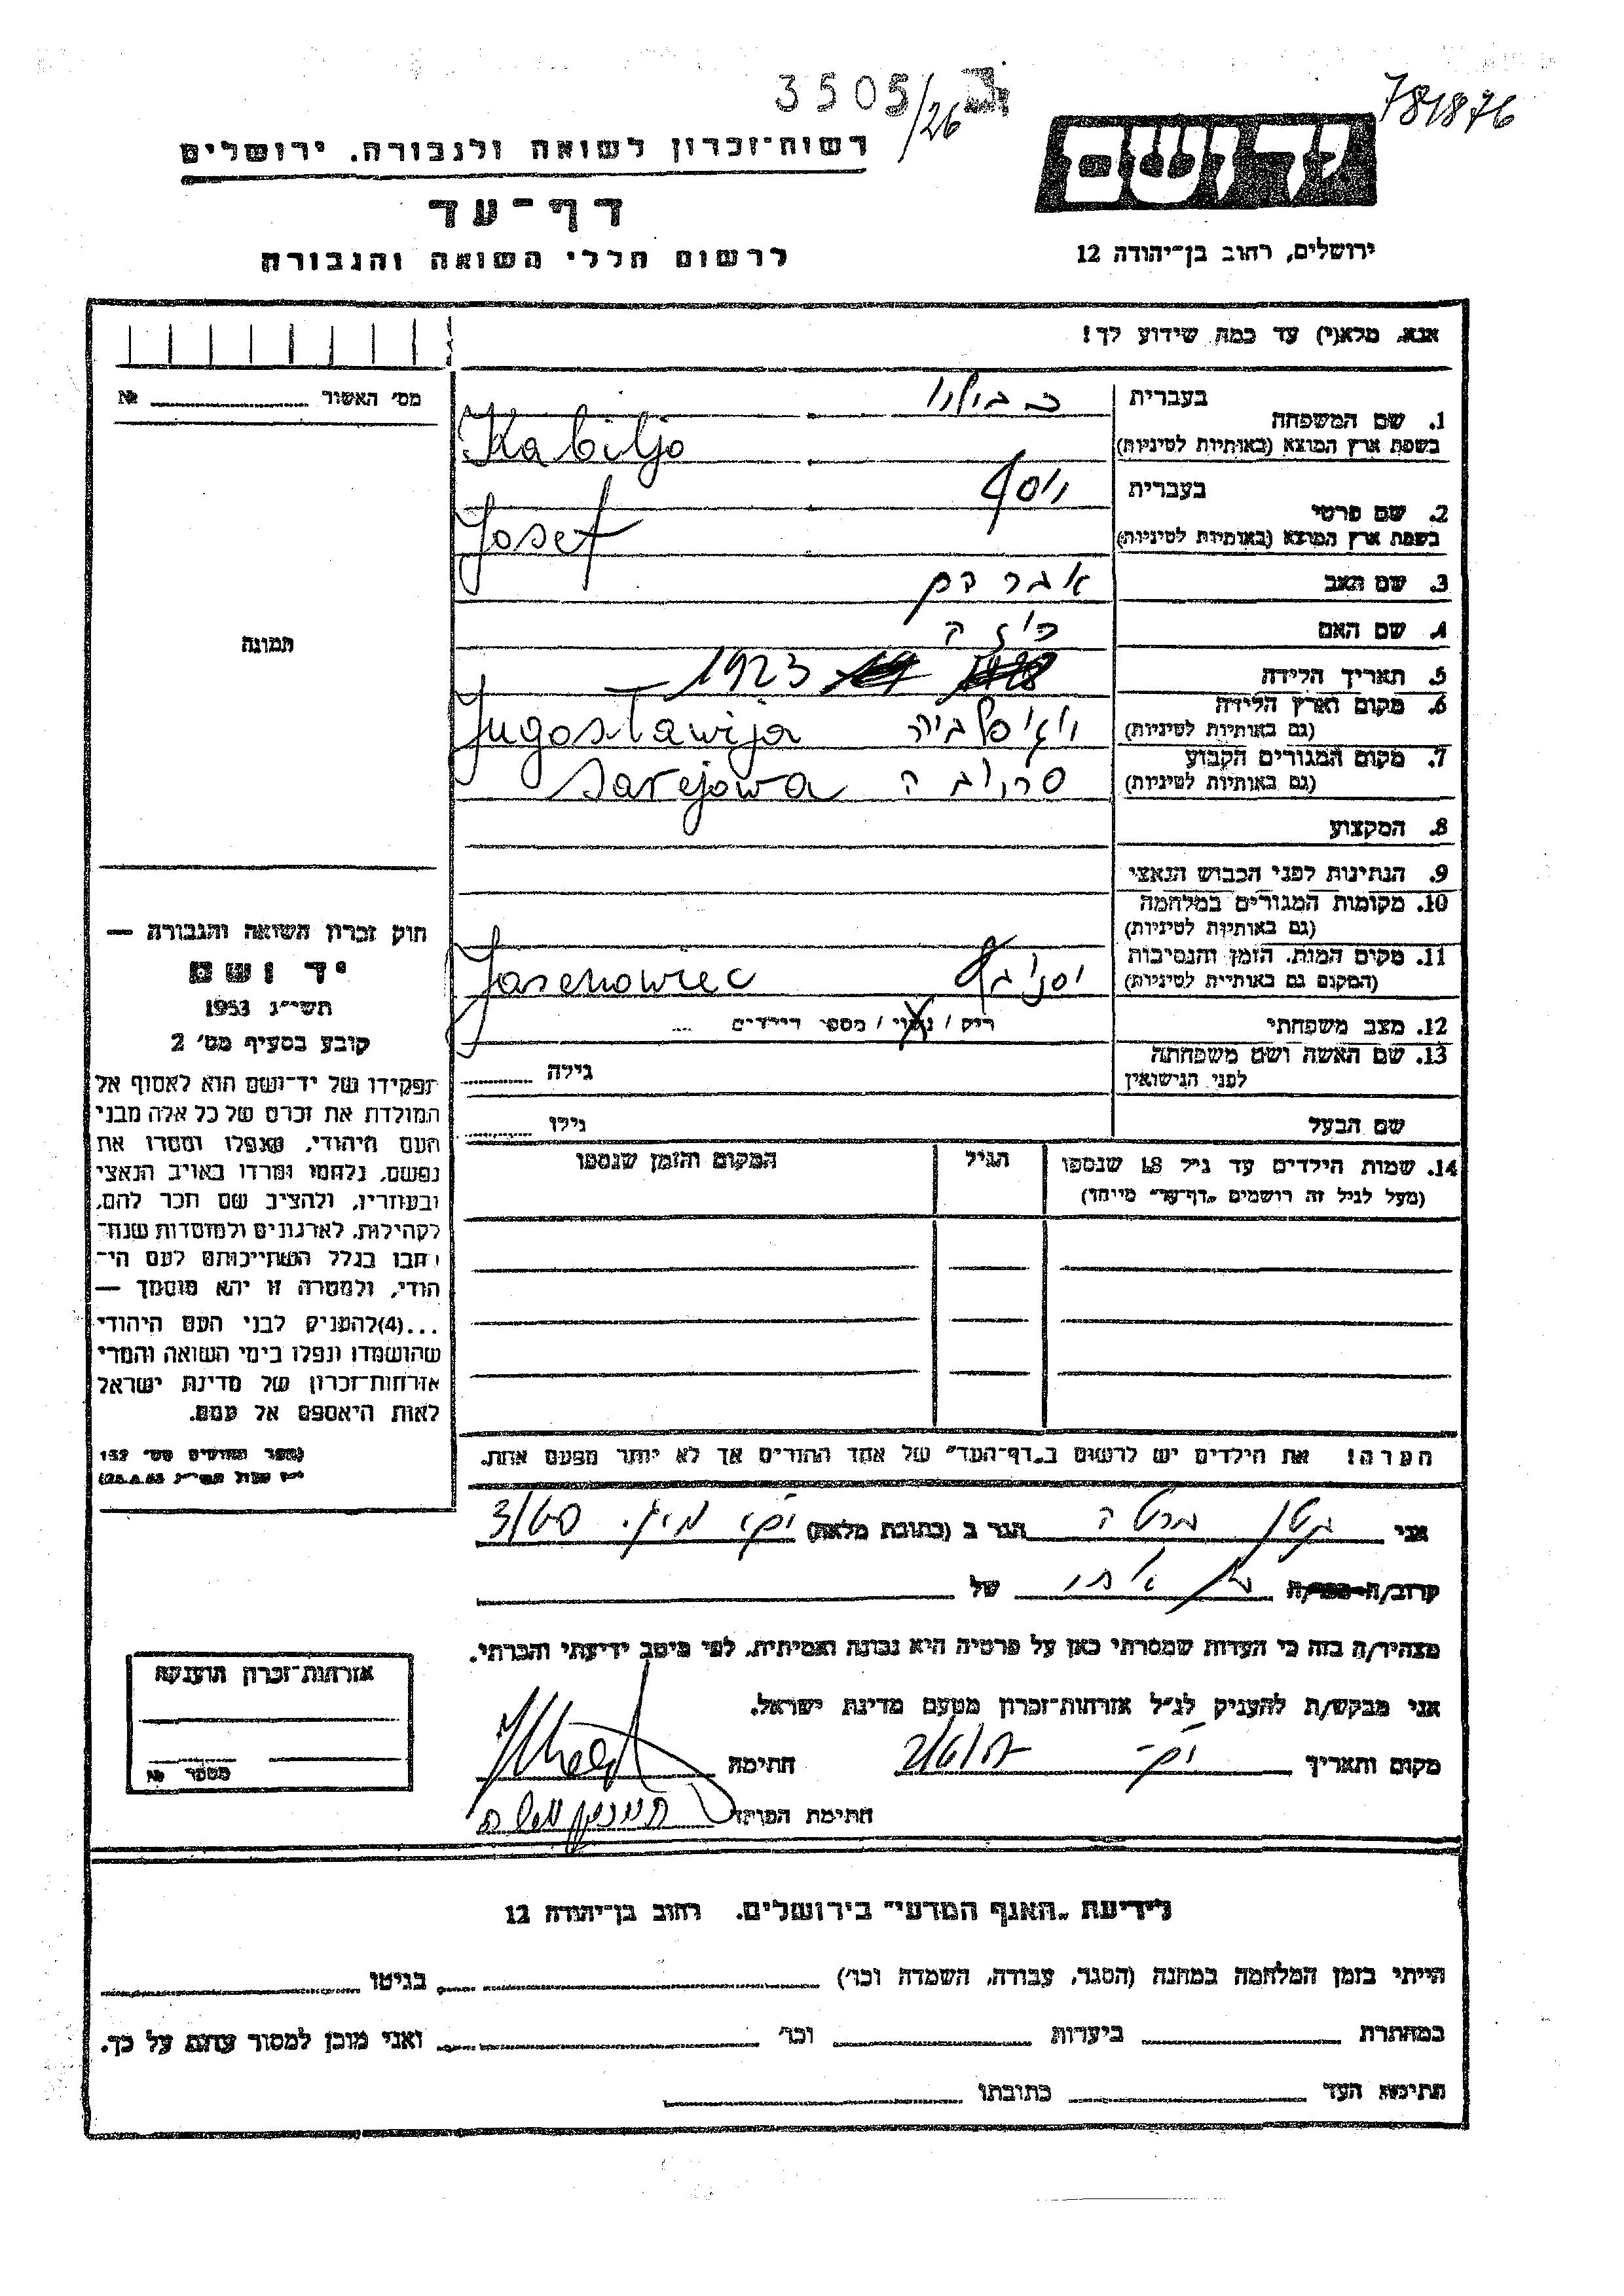 3505/26
781876
יד ושם
רשות־זכרון לשואה ולגבורה. ירושלים
דף־עד
לרשום חללי השואה והגבורה
ירושלים, רחוב בן־יהודה 12
אנא, מלא(י) עד כמה שידוע לך!
מס' האשור №
תמונה
1. שם המשפחה
בעברית
כבוליו
בשפת ארץ המוצא (באותיות לטיניות)
Kabiljo
2. שם פרטי
בעברית
יוסף
בשפת ארץ המוצא (באותיות לטיניות)
Josef
3. שם האב
אברהם
4. שם האם
5. תאריך הלידה
1923
6. מקום וארץ הלידה
(גם באותיות לטיניות)
Jugoslawija
7. מקום המגורים הקבוע
(גם באותיות לטיניות)
Sarejowa
8. המקצוע
9. הנתינות לפני הכבוש הנאצי
10. מקומות המגורים במלחמה
(גם באותיות לטיניות)
11. מקום המות, הזמן והנסיבות
(המקום גם באותיות לטיניות)
Jasenowec
12. מצב משפחתי
רוק / נשוי / מספר הילדים
13. שם האשה ושם משפחתה
לפני הנישואין
גילה
שם הבעל
גילו
14. שמות הילדים עד גיל 18 שנספו
(מעל לגיל זה רושמים „דף־עד" מיוחד)
הגיל
המקום והזמן שנספו
הערה! את הילדים יש לרשום ב„דף־העד" של אחד ההורים אך לא יותר מפעם אחת.
חוק זכרון השואה והגבורה —
יד ושם
תשי״ג 1953
קובע בסעיף מס' 2
תפקידו של יד־ושם הוא לאסוף אל
המולדת את זכרם של כל אלה מבני
העם היהודי, שנפלו ומסרו את
נפשם, נלחמו ומרדו באויב הנאצי
ובעוזריו, ולהציב שם וזכר להם,
לקהילות, לארגונים ולמוסדות שנח־
רבו בגלל השתייכותם לעם הי־
הודי, ולמטרה זו יהא מוסמך —
...(4) להעניק לבני העם היהודי
שהושמדו ונפלו בימי השואה והמרי
אזרחות־זכרון של מדינת ישראל
לאות היאספם אל עמם.
(ספר החוקים מס' 132
אני הגר ב (כתובת מלאה)
קרוב/ה של
מצהיר/ה בזה כי העדות שמסרתי כאן על פרטיה היא נכונה ואמיתית, לפי מיטב ידיעתי והכרתי.
אני מבקש/ת להעניק לנ״ל אזרחות־זכרון מטעם מדינת ישראל.
מקום ותאריך חתימה
חתימת הפוקד
אזרחות־זכרון הוענקה
מספר №
לידיעת „האגף המדעי" בירושלים. רחוב בן־יהודה 12
הייתי בזמן המלחמה במחנה (הסגר, עבודה, השמדה וכו') בגיטו
במחתרת ביערות וכו' ואני מוכן למסור עדות על כך.
חתימת העד כתובתו